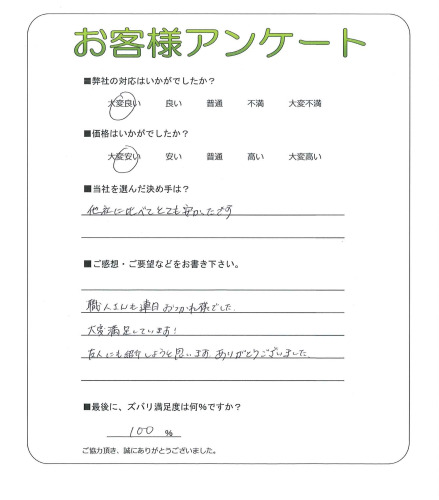 お客様アンケート
■弊社の対応はいかがでしたか？
大変良い 良い 普通 不満 大変不満
■価格はいかがでしたか？
大変安い 安い 普通 高い 大変高い
■当社を選んだ決め手は？
他社に比べてとても安かったです
■ご感想・ご要望などをお書き下さい。
職人さんも連日おつかれ様でした。
大変満足しています！
友人にも紹介しようと思います。ありがとうございました。
■最後に、ズバリ満足度は何％ですか？
100 %
ご協力頂き、誠にありがとうございました。